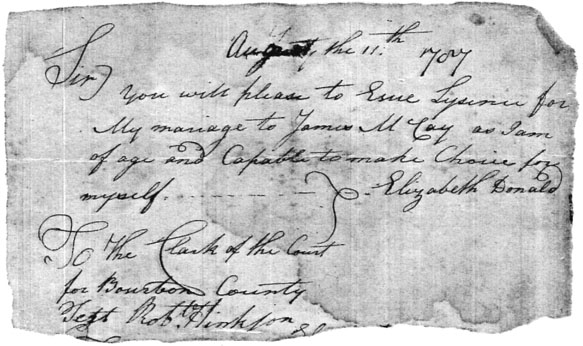 August, the 11th 1787
Sir
you will please to Esue Lysence for
My mariage to James McCay as I am
of age and Capable to make Choice for
myself.
Elizabeth Donald
To the Clark of the Court
for Bourbon County
Test Robt Hinkson